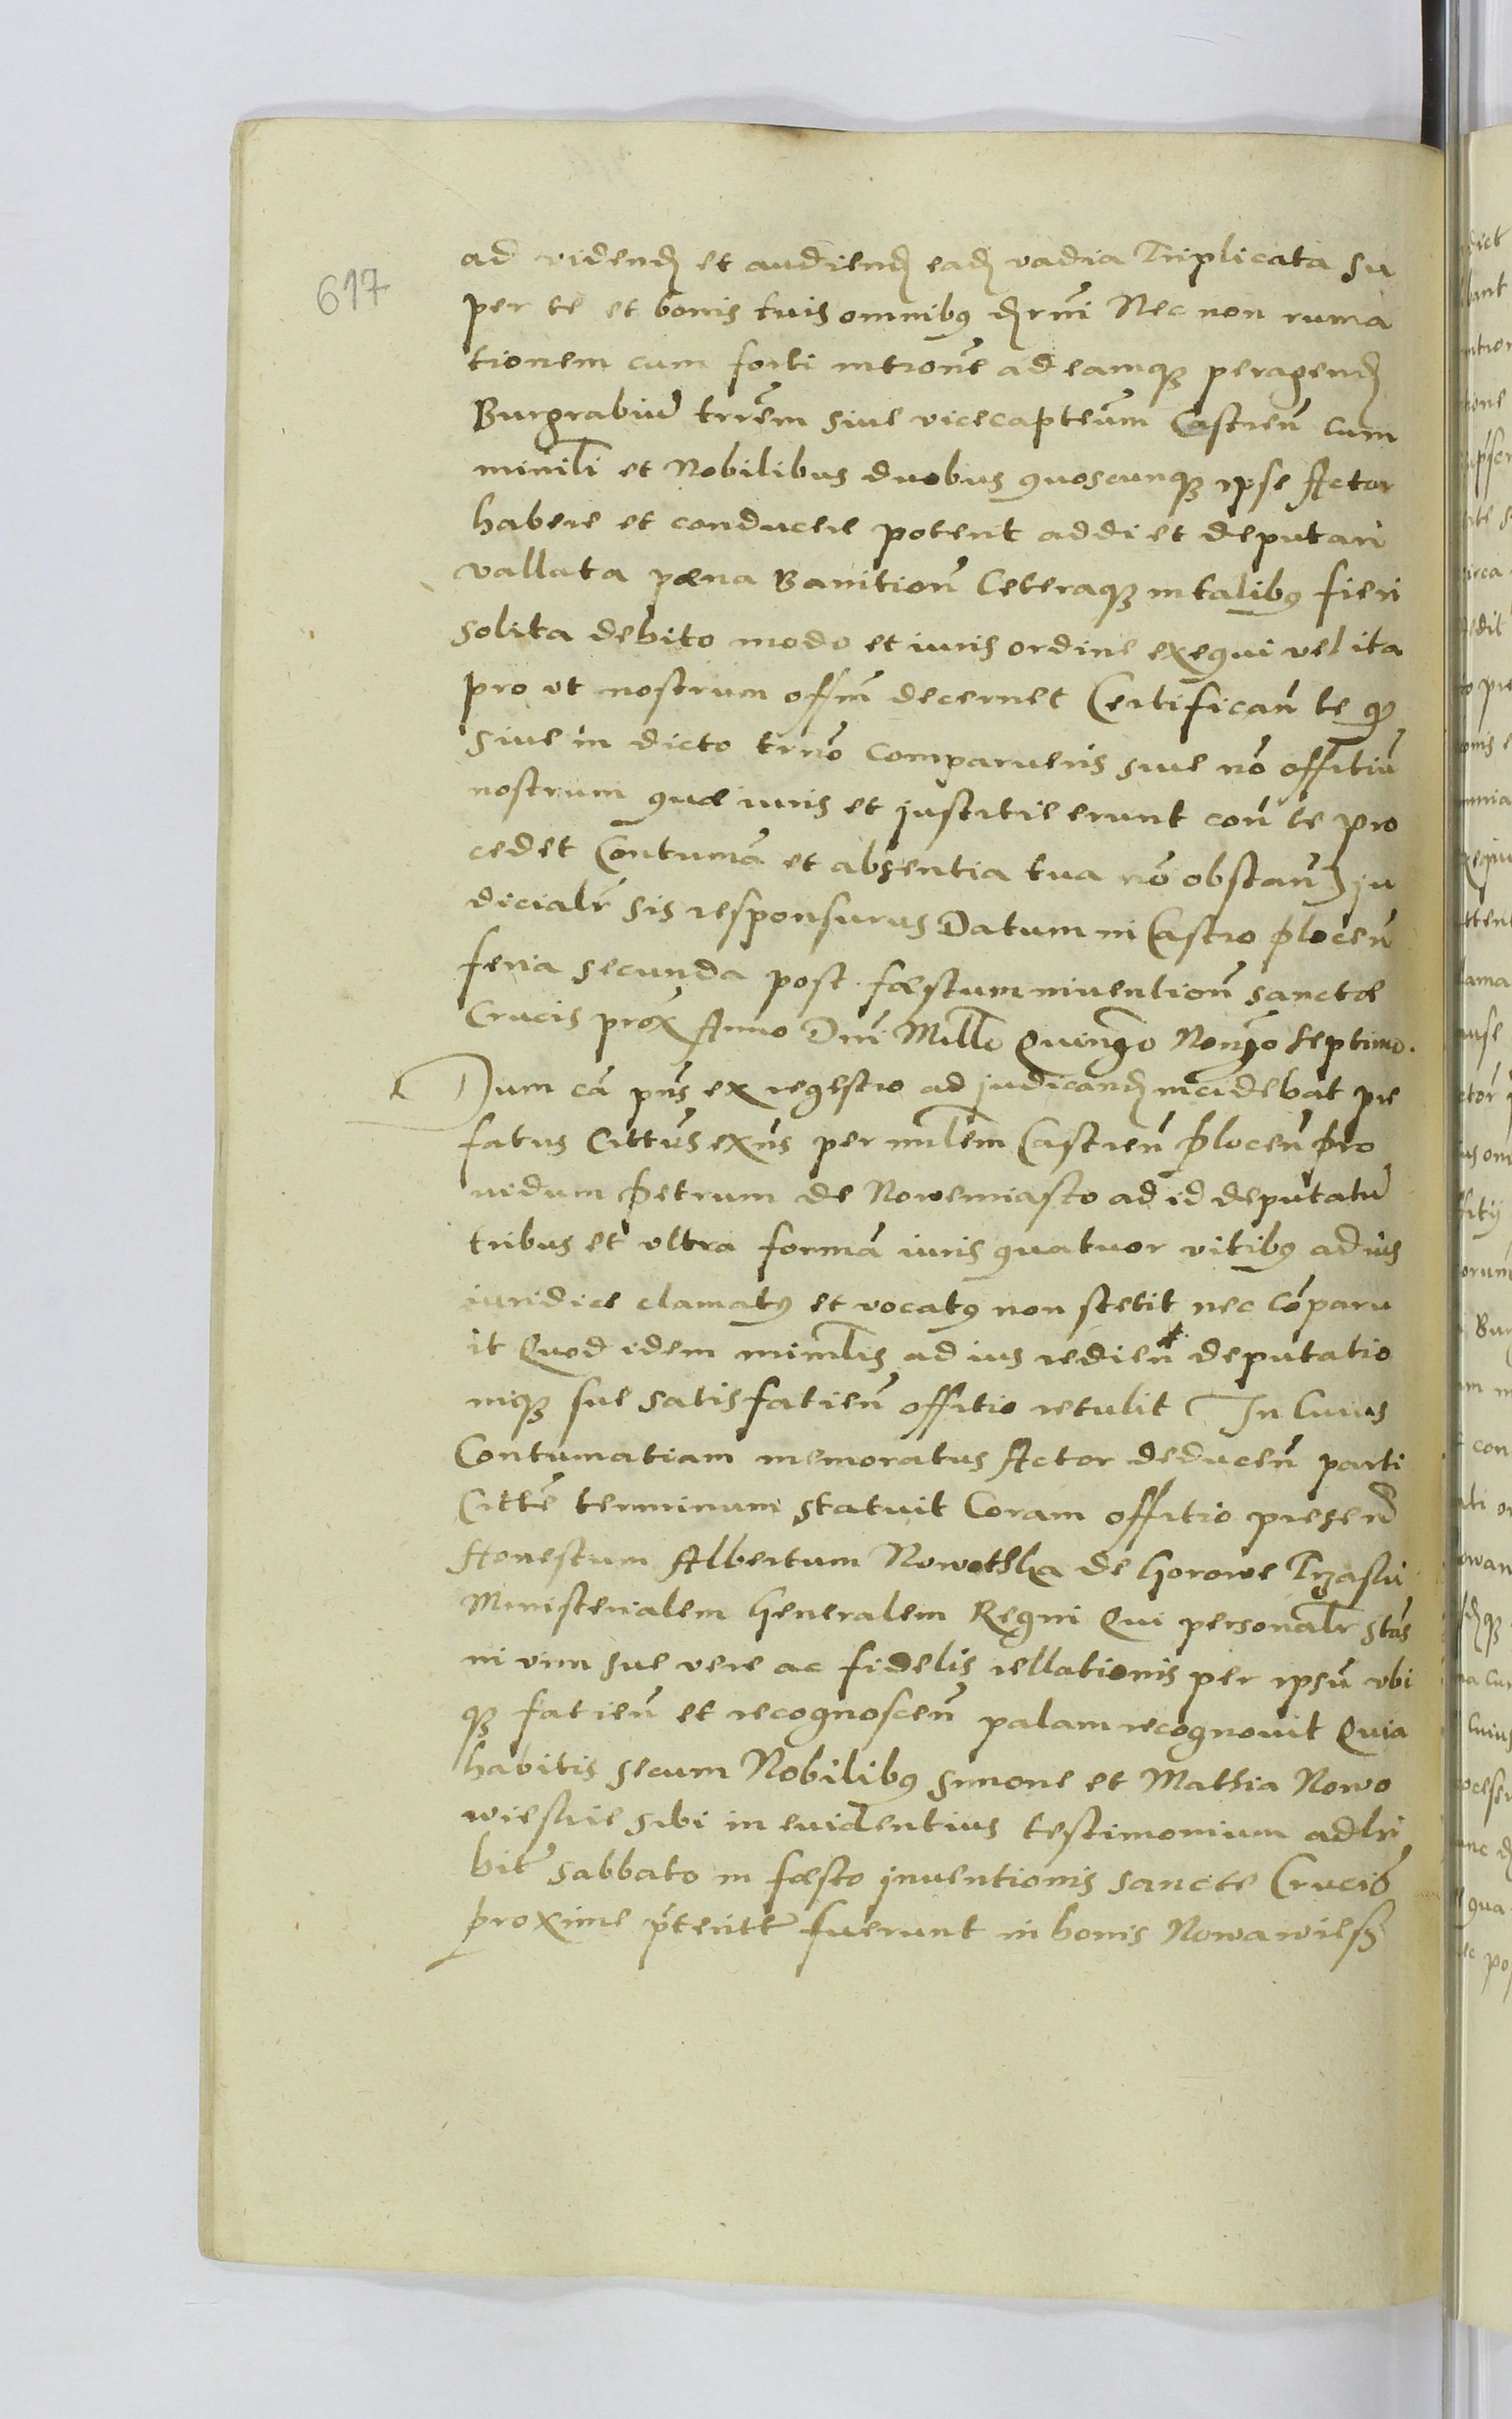 617
ad videnđ et audienđ eađ vadia Triplicata su
per te et bonis tuis omnibꝰ đrñi Nec non ruma
tionem cum forti mtione ad eamqꝫ peragenđ
Burgrabiũ trrẽm siue vicecapteũm Castreñ cum
minĩli et Nobilibus duobus quoscunqꝫ ipse Actor
habere et conducere potent addi et deputari
vallata pœna Banitioñ Ceteraqꝫ in talibꝰ fieri
solita debito modo et iuris ordine exequi vel ita
pro ut nostrum offm̃ decernet Certificañ te qꝫ
siue in dicto trñõ comparueris siue nõ offitiũ
nostrum quæ iuris et justitie erunt coñ te pro
cedet Contumã et absentia tua nõ obstañ) ju
dicialr̃ sis responsurus Datum in Castro ploceñ
feria secunda post fæstum inuentioñ sanctæ
Crucis prox̃ Anno Dnĩ Millõ Quingõ Nongõ septimo.
Dum cã pñs ex regestro ad judicanđ incidebat pre
fatus Cittũs exñs per mnlẽm Castreñ plocen̄ pro
uidum petrum de Nowemiasto ad id deputatũ
tribus et vltra formã iuris quatuor vitibꝰ ad ius
iuridice clamatꝰ et vocatꝰ non stetit nec cõparu
it Quod idem minĩlis ad ius redieñ deputatio
niqꝫ sue satisfatieñ offitio retulit In Cuius
Contumatiam memoratus Actor deduceñ parti
Cittẽ terminum statuit Coram offitio preseñ
Honestum Albertum Nowothka de Gorowe Trzaski
Ministerialem Generalem Regni Qui personalr̃ stãs
in vim sue vere ac fidelis rellationis per ipsũ vbi
qꝫ fatieñ et recognosceñ palam recognouit Quia
habitis secum Nobilibꝰ simone et Mathia Nowo
wieskie sibi in euidentius testimonium adhi
bit̃ sabbato in fæsto jnuentionis sancte Crucis
proxime p̃teritt̃ fuerunt in bonis Nowawiesß